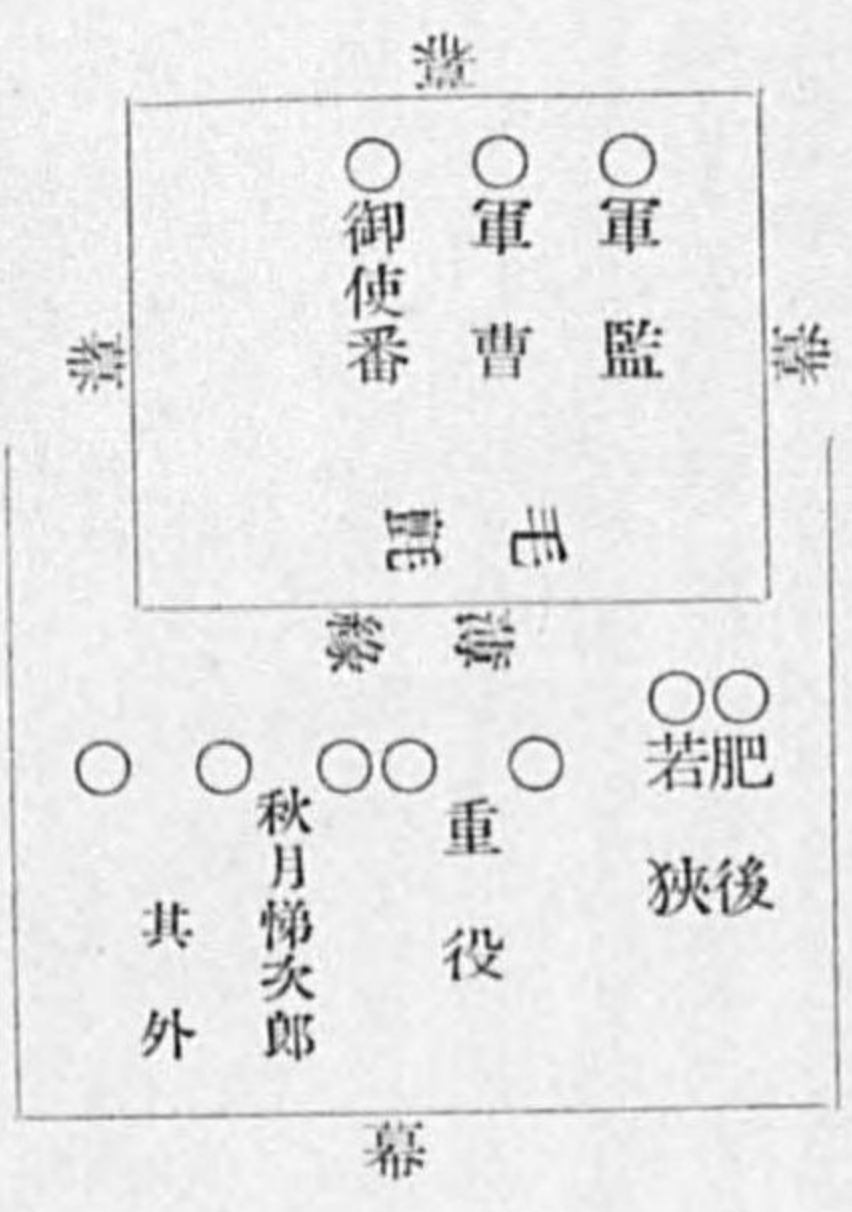 幕
幕
○軍監
○軍曹
○御使番
幕
毛氈
薄緣
○肥後
○若狹
○重役○
○秋月悌次郎
○其外○
幕